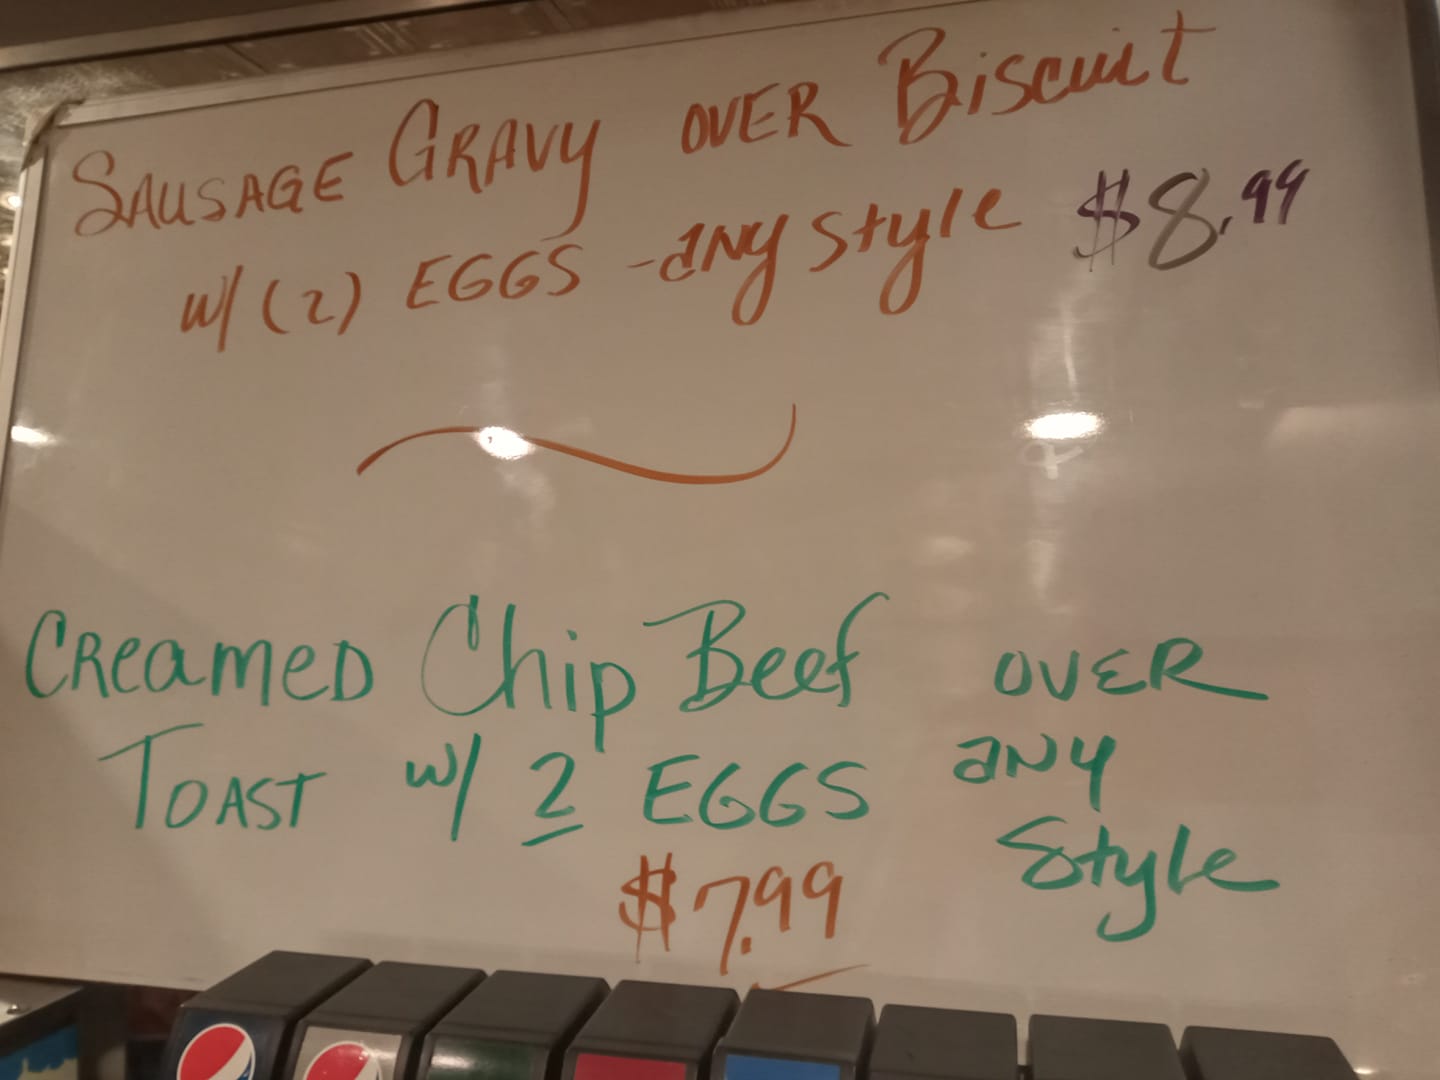 SAUSAGE GRAVY OVER Biscuit
w/ (2) EGGS - any style $8.99
CREAMED Chip Beef OVER
TOAST w/ 2 EGGS any
Style
$7.99